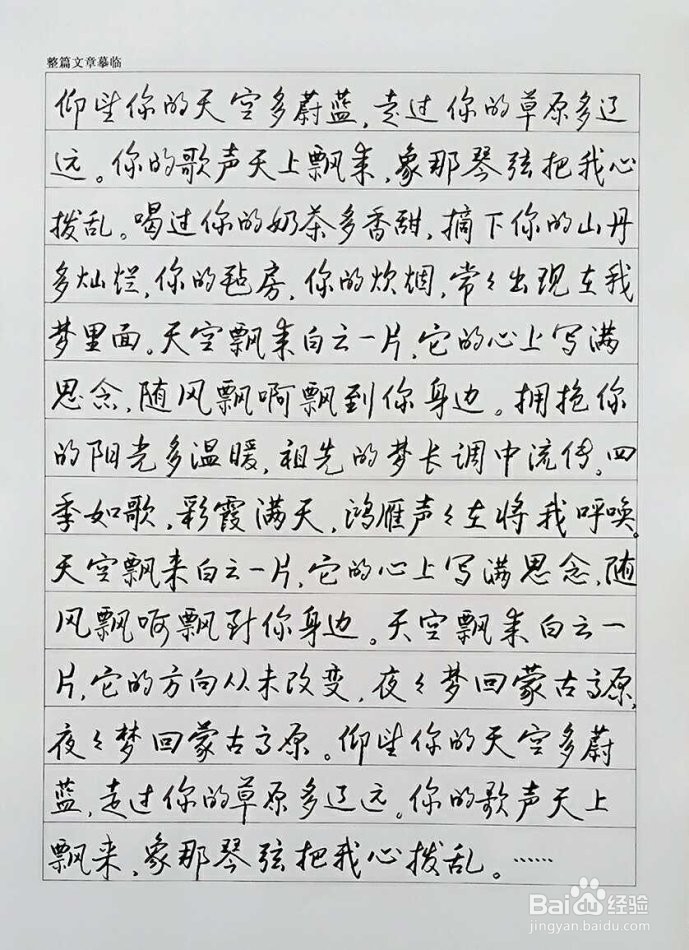 整篇文章摹临
仰望你的天空多蔚蓝,走过你的草原多辽
远。你的歌声天上飘来,象那琴弦把我心
拨乱。喝过你的奶茶多香甜,摘下你的山丹
多灿烂,你的毡房,你的炊烟,常々出现在我
梦里面。天空飘来白云一片,它的心上写满
思念,随风飘啊飘到你身边。拥抱你
的阳光多温暖,祖先的梦长调中流传。四
季如歌,彩霞满天,鸿雁声々在将我呼唤。
天空飘来白云一片,它的心上写满思念,随
风飘啊飘到你身边。天空飘来白云一
片,它的方向从未改变,夜々梦回蒙古高原,
夜々梦回蒙古高原。仰望你的天空多蔚
蓝,走过你的草原多辽远。你的歌声天上
飘来,象那琴弦把我心拨乱。……
Baidu经验
jingyan.baidu.com